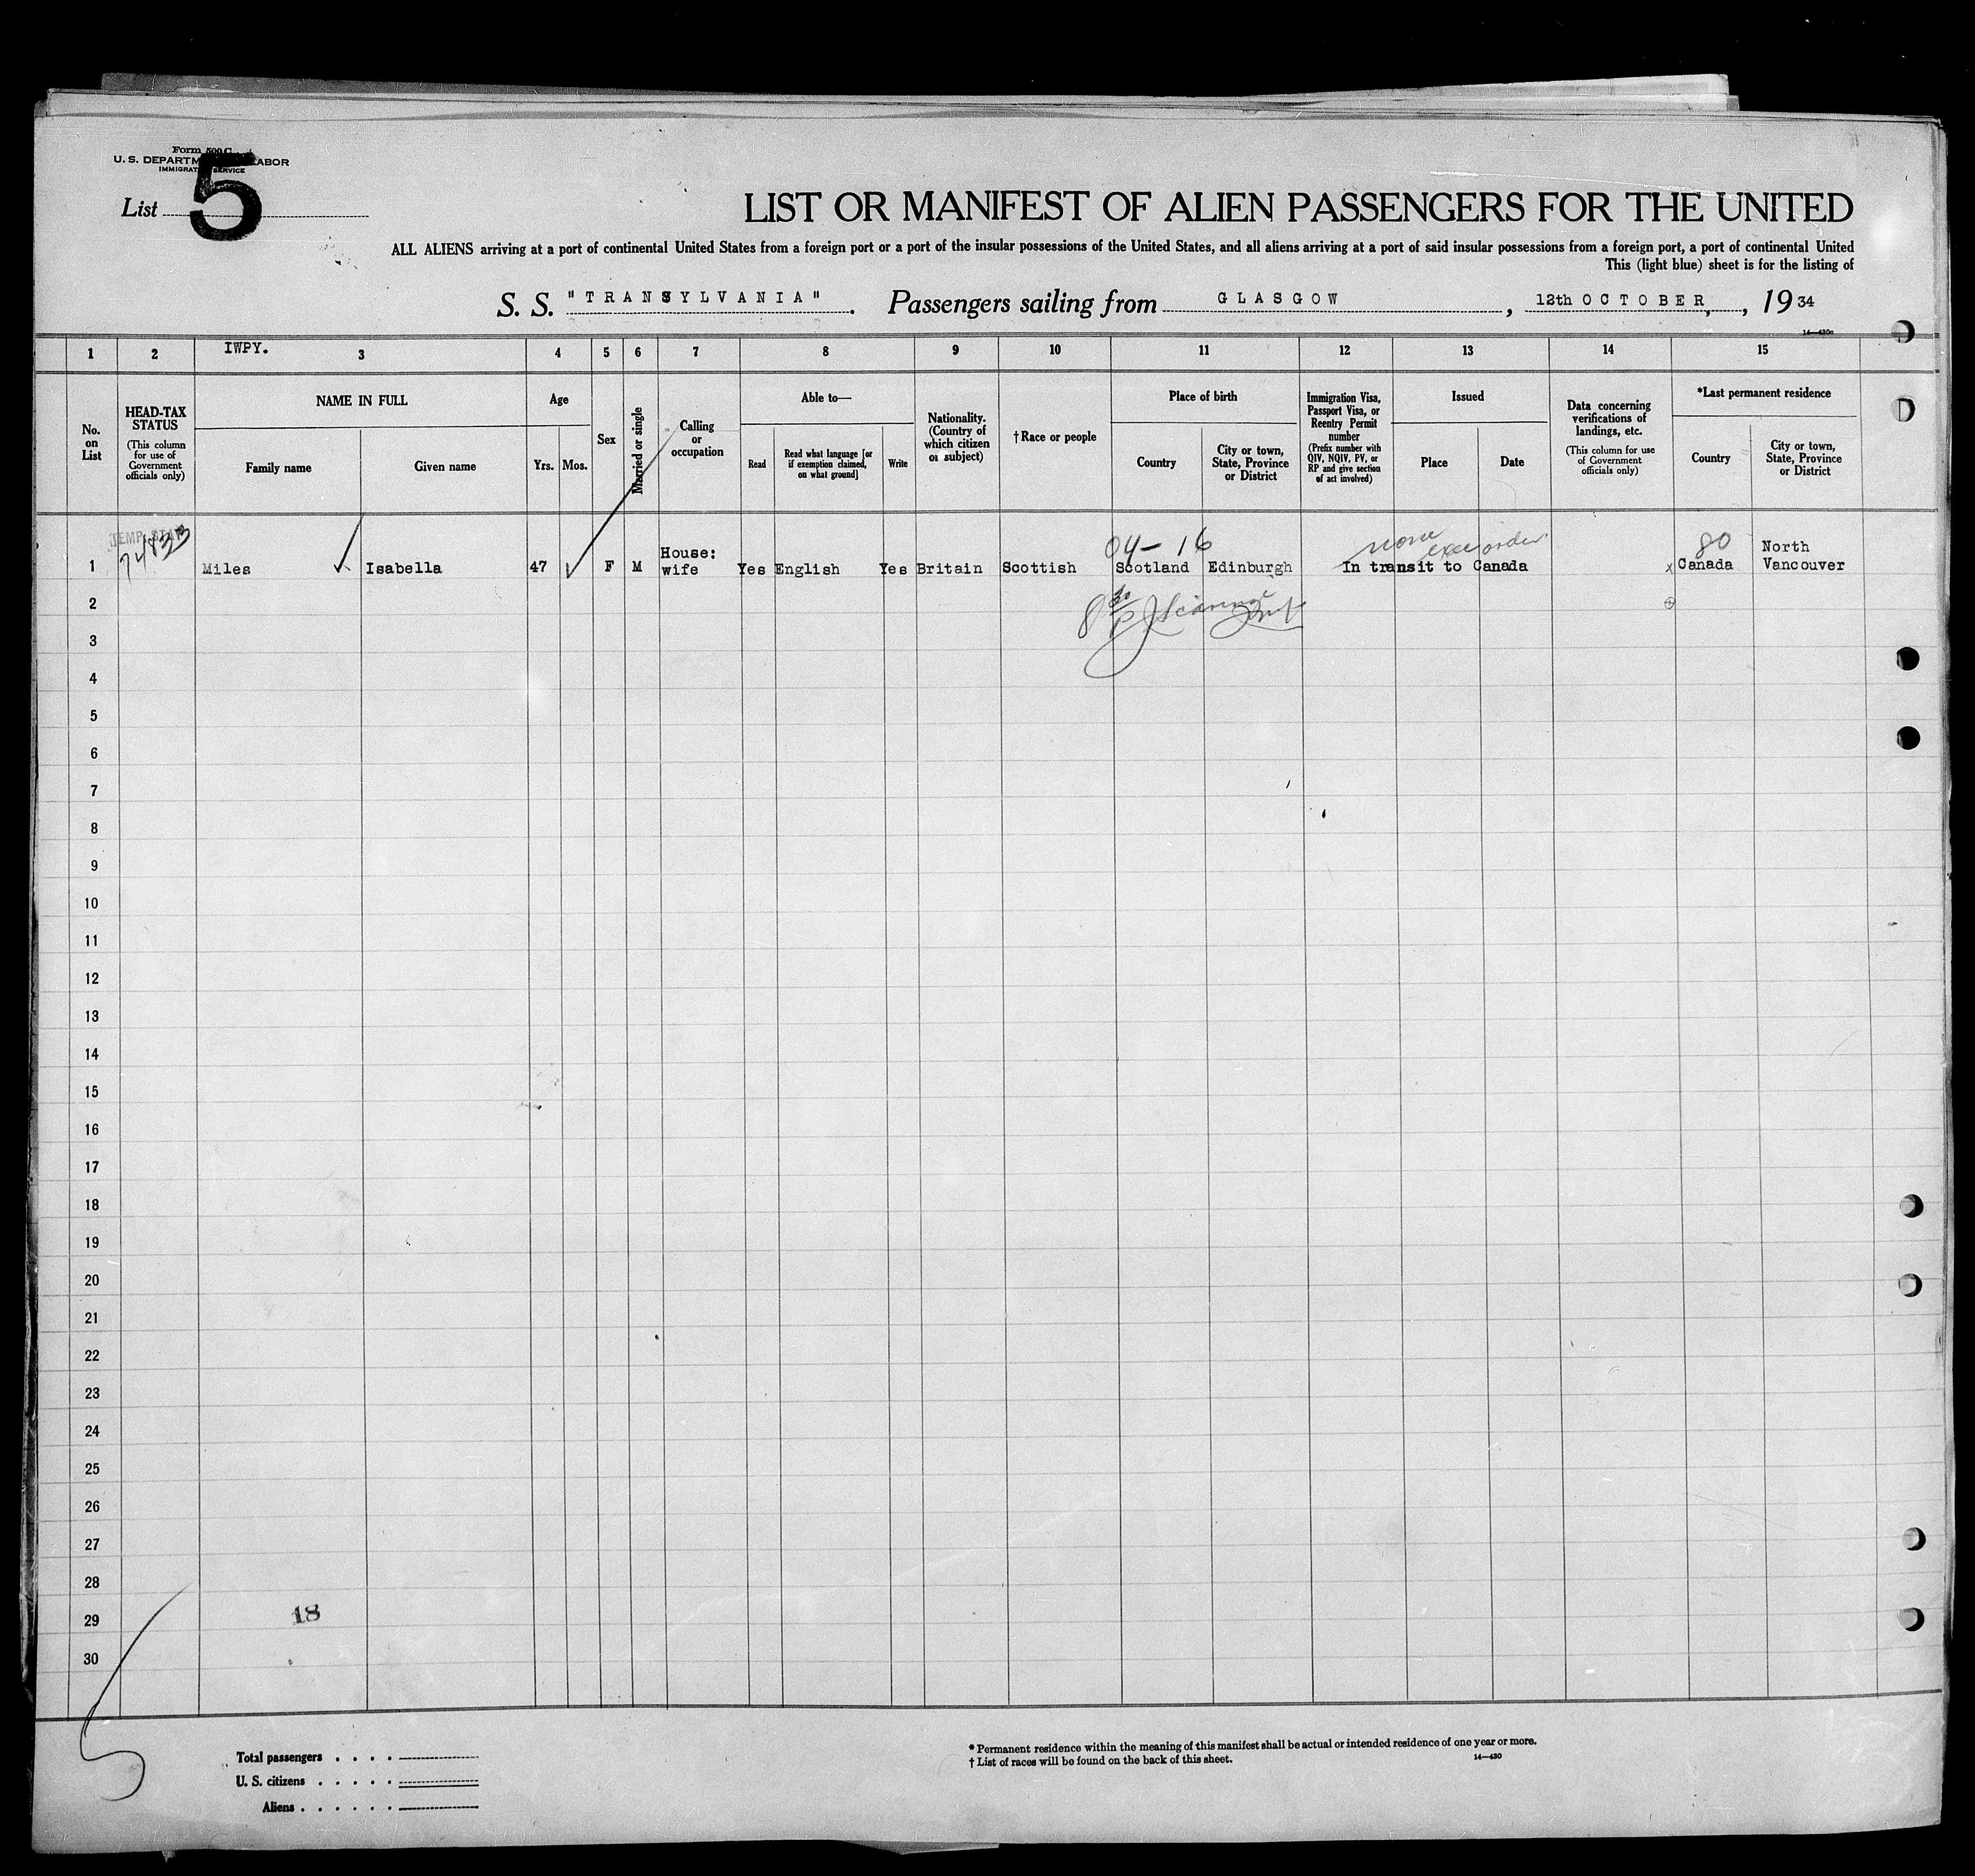 Form 500 C
U. S. DEPARTM ABOR
IMMIGRAT SERVICE
List 5
LIST OR MANIFEST OF ALIEN PASSENGERS FOR THE UNITED
ALL ALIENS arriving at a port of continental United States from a foreign port or a port of the insular possessions of the United States, and all aliens arriving at a port of said insular possessions from a foreign port, a port of continental United
This (light blue) sheet is for the listing of
S. S. "TRANSYLVANIA". Passengers sailing from GLASGOW, 12th OCTOBER, 1934
14—430c
1 2 IWPY. 3 4 5 6 7 8 9 10 11 12 13 14 15
No. on List
HEAD-TAX STATUS
(This column for use of Government officials only)
NAME IN FULL
Family name Given name
Age
Yrs. Mos.
Sex
Married or single
Calling or occupation
Able to—
Read Read what language [or if exemption claimed, on what ground] Write
Nationality. (Country of which citizen or subject)
†Race or people
Place of birth
Country City or town, State, Province or District
Immigration Visa, Passport Visa, or Reentry Permit number
(Prefix number with QIV, NQIV, PV, or RP and give section of act involved)
Issued
Place Date
Data concerning verifications of landings, etc.
(This column for use of Government officials only)
*Last permanent residence
Country City or town, State, Province or District
TEMP. STAY
74833
04—16
none
exec order
80
1 Miles Isabella 47 F M House: wife Yes English Yes Britain Scottish Scotland Edinburgh In transit to Canada x Canada North Vancouver
2
8 30
P
3
4
5
6
7
8
9
10
11
12
13
14
15
16
17
18
19
20
21
22
23
24
25
26
27
28
29 18
30
5
Total passengers . . . .
U. S. citizens . . . . .
Aliens . . . . . .
* Permanent residence within the meaning of this manifest shall be actual or intended residence of one year or more.
† List of races will be found on the back of this sheet. 14—430